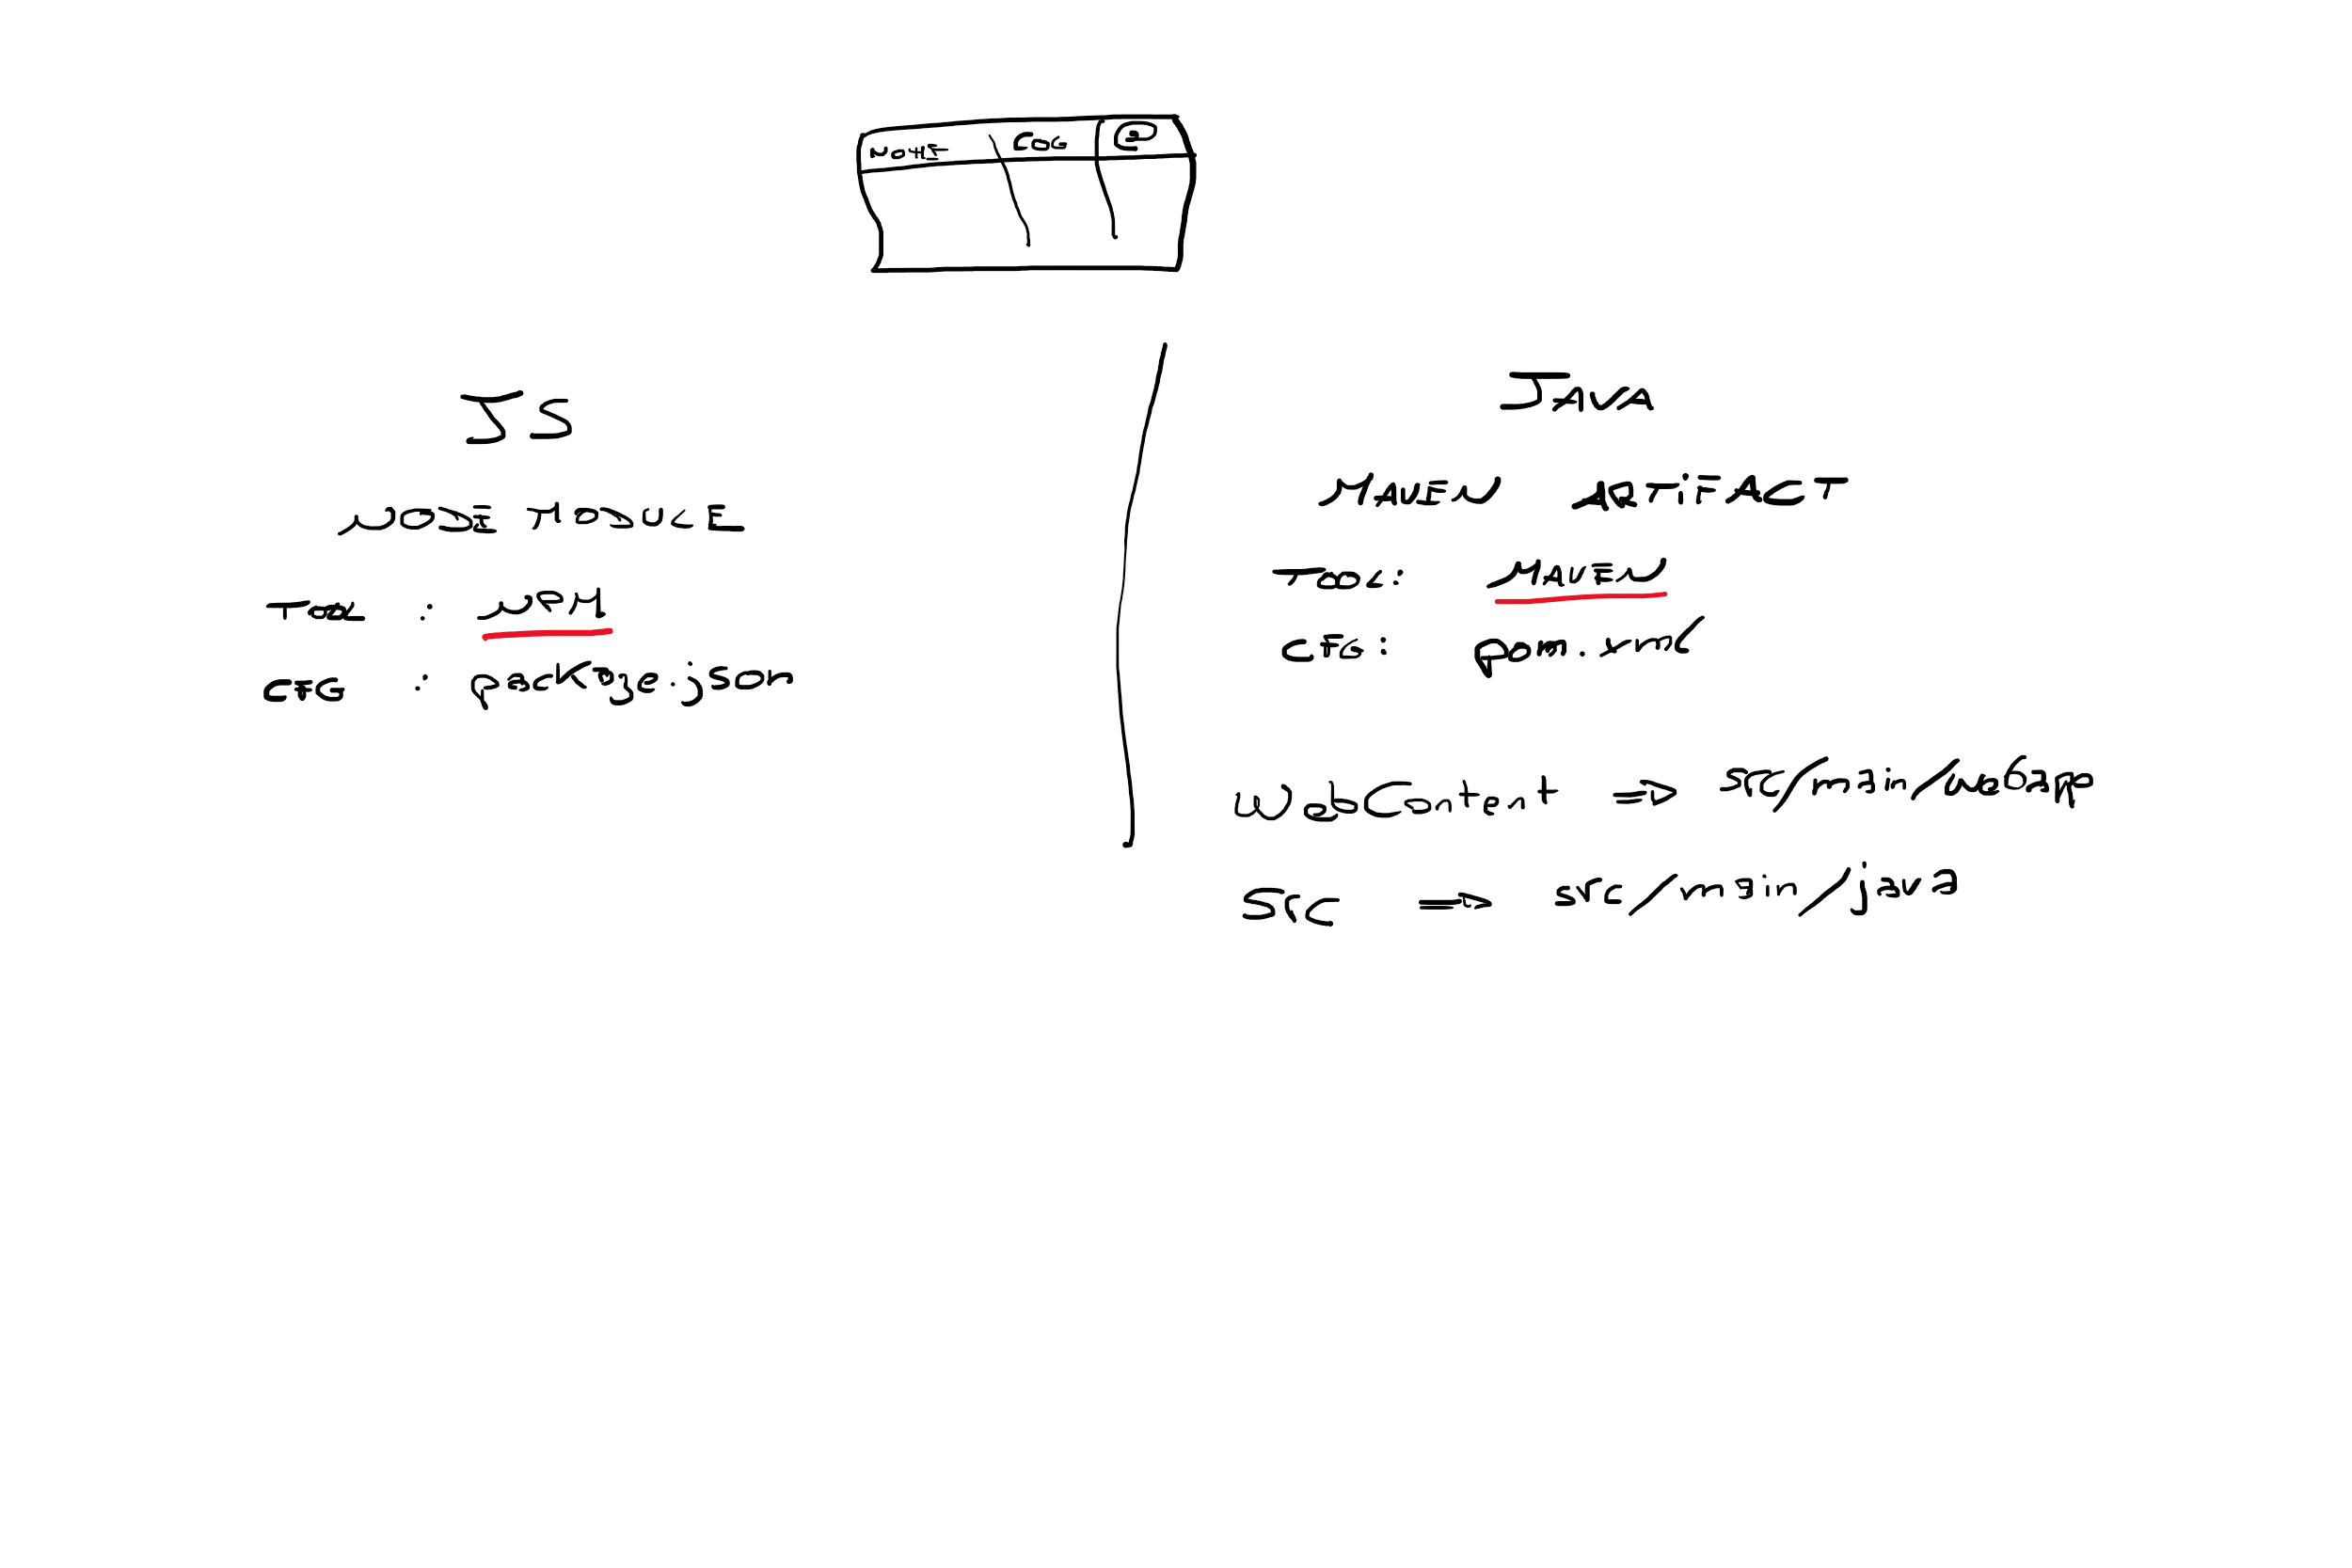 NOME COG @
JS
NODE MODULE
TOOL : NPM
CFG : package.json
JAVA
MAVEN ARTIFACT
TOOL: MAVEN
CFG: pom.xml
WebContent => src/main/webapp
SRC => src/main/java